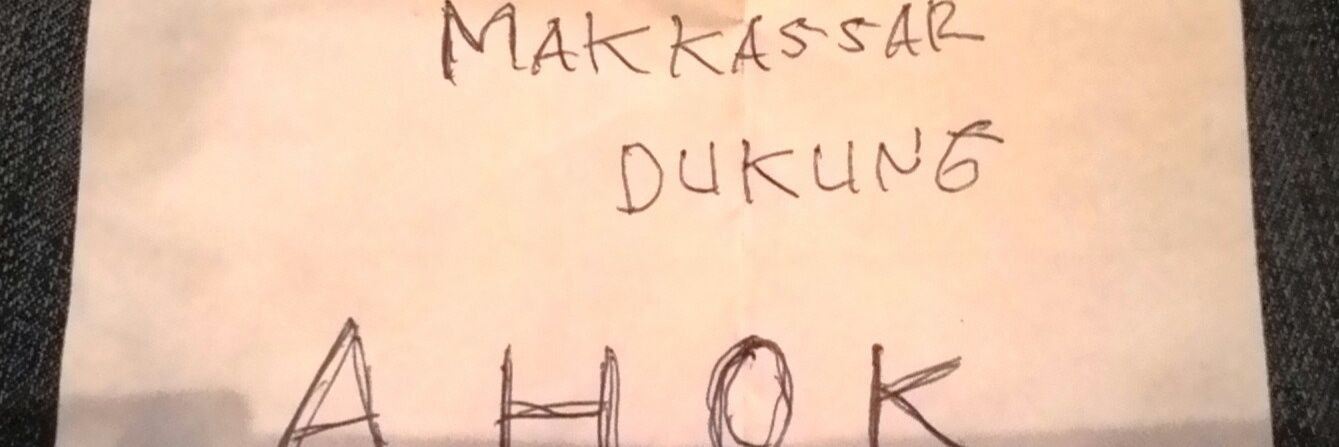 MAKKASSAR
DUKUNG
AHOK